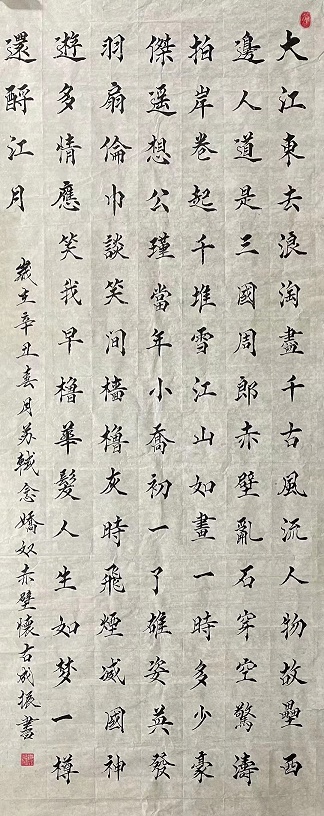 大江東去浪淘盡千古風流人物故壘西
邊人道是三國周郎赤壁亂石穿空驚濤
拍岸卷起千堆雪江山如畫一時多少豪
傑遥想公瑾當年小喬初一了雄姿英發
羽扇倫巾談笑间檣櫓灰時飛煙滅國神
遊多情應笑我早櫓華髮人生如梦一樽
還酹江月
歲在辛丑春月苏軾念嬌奴赤壁懷古成振書